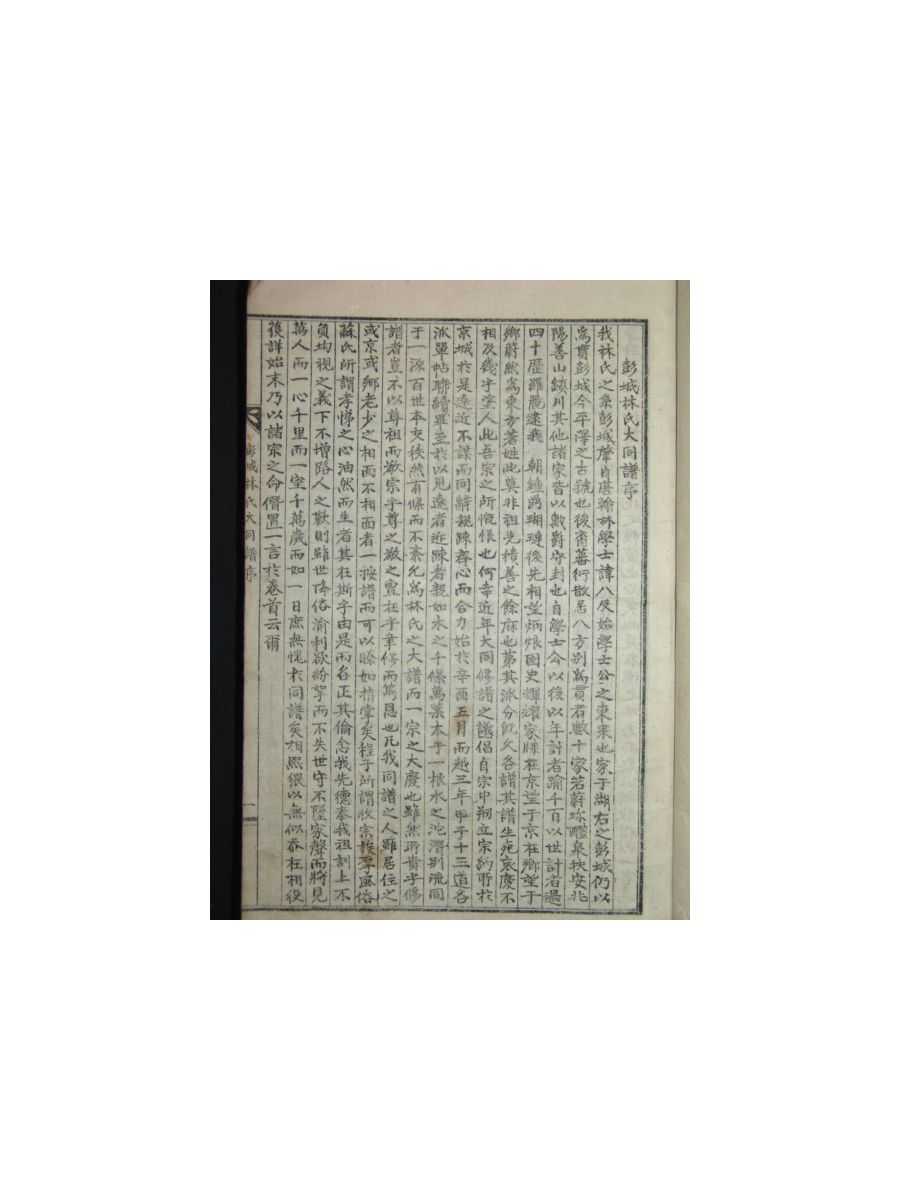 彭城林氏大同譜序
我林氏之系彭城肇自唐翰林學士諱八及始學士公之東來也家于湖右之彭城仍以
爲貫彭城今平澤之古號也後裔蕃衍散居八方別爲貫者數十家若蔚珍醴泉扶安兆
陽善山鎭川其他諸家皆以勳爵守封也自學士今以後以年計者踰千百以世計者過
四十歷羅麗逮我 朝鍾爵瑚璉後先相望炳烺國史耀耀家牒在京望于京在鄕望于
鄕蔚然爲東方著姓此莫非祖先積善之餘庥也第其派分旣久各譜其譜生死哀慶不
相及幾乎塗人此吾宗之所慨恨也何幸近年大同修譜之議倡自宗中刱立宗約所於
京城於是遠近不謀而同辭親踈齊心而合力始於辛酉五月而越三年甲子十三道各
派單帖聯續畢至於以見遠者近踈者親如木之千條萬葉本于一根水之沱潛別流同
于一源百世本支秩然有條而不紊允爲林氏之大譜而一宗之大慶也雖然所貴乎修
譜者豈不以尊祖而敬宗乎尊之敬之亶在乎聿修而篤恩也凡我同譜之人雖居住之
或京或鄕老少之相面不相面者一按譜而可以瞭如指掌矣程子所謂收宗族厚風俗
蘇氏所謂孝悌之心油然而生者其在斯乎由是而各正其倫念我先德奉我祖訓上不
負均視之義下不增路人之歎則雖世降俗渝利欲紛拏而不失世守不墜家聲而將見
萬人而一心千里而一室千萬歲而如一日庶無愧於同譜矣相熙猥以無似忝在相役
獲詳始末乃以諸宗之命僭置一言於卷首云爾
彭城林氏大同譜序 一